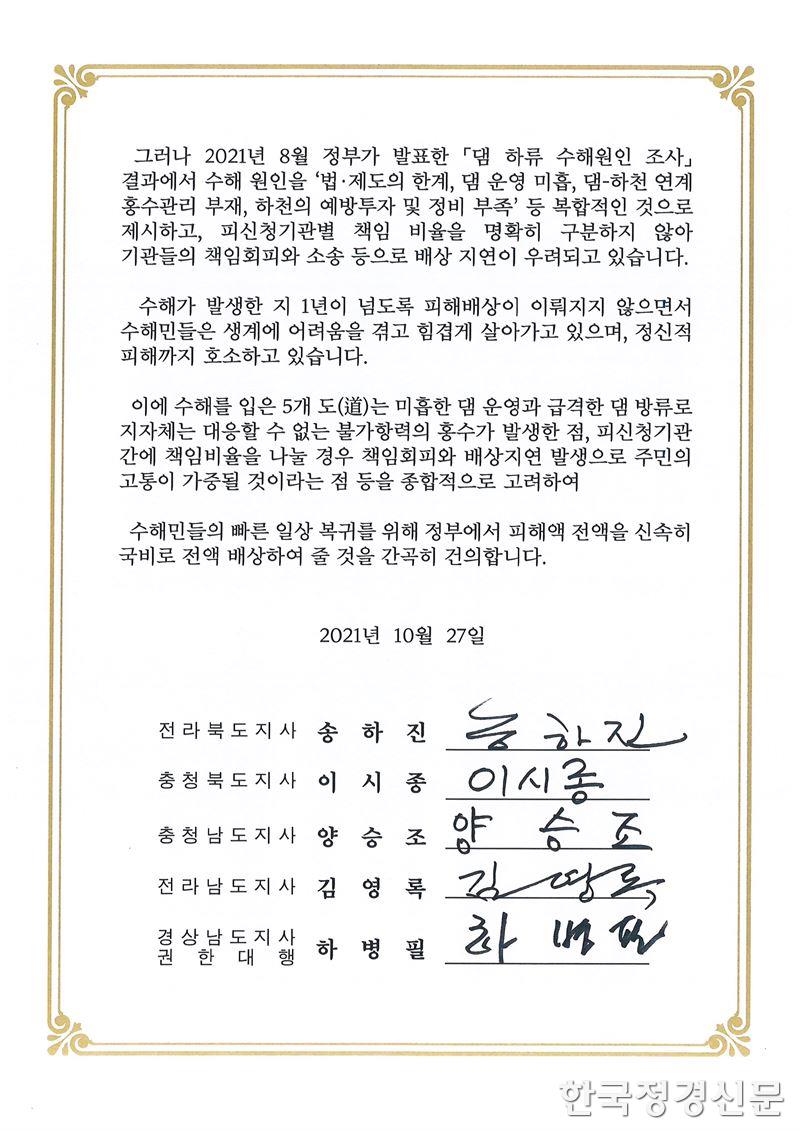 그러나 2021년 8월 정부가 발표한 「댐 하류 수해원인 조사」
결과에서 수해 원인을 ‘법·제도의 한계, 댐 운영 미흡, 댐-하천 연계
홍수관리 부재, 하천의 예방투자 및 정비 부족’ 등 복합적인 것으로
제시하고, 피신청기관별 책임 비율을 명확히 구분하지 않아
기관들의 책임회피와 소송 등으로 배상 지연이 우려되고 있습니다.
수해가 발생한 지 1년이 넘도록 피해배상이 이뤄지지 않으면서
수해민들은 생계에 어려움을 겪고 힘겹게 살아가고 있으며, 정신적
피해까지 호소하고 있습니다.
이에 수해를 입은 5개 도(道)는 미흡한 댐 운영과 급격한 댐 방류로
지자체는 대응할 수 없는 불가항력의 홍수가 발생한 점, 피신청기관
간에 책임비율을 나눌 경우 책임회피와 배상지연 발생으로 주민의
고통이 가중될 것이라는 점 등을 종합적으로 고려하여
수해민들의 빠른 일상 복귀를 위해 정부에서 피해액 전액을 신속히
국비로 전액 배상하여 줄 것을 간곡히 건의합니다.
2021년 10월 27일
전라북도지사 송하진 송하진
충청북도지사 이시종 이시종
충청남도지사 양승조 양승조
전라남도지사 김영록 김영록
경상남도지사
권한대행 하병필 하병필
한국정경신문